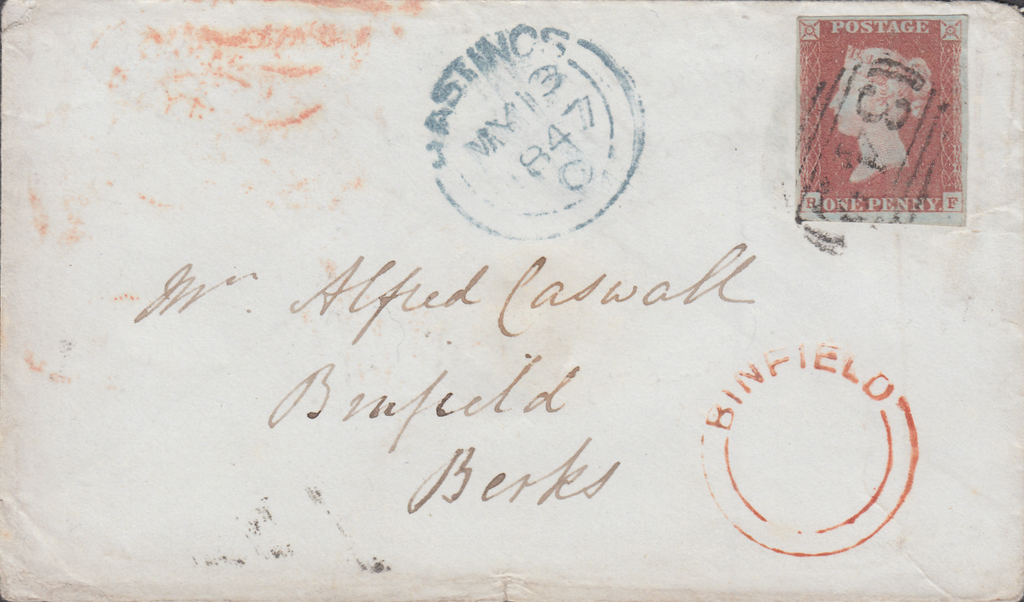 HASTINGS
MY 13
1847
O
POSTAGE
ONE PENNY.
R F
Mr. Alfred Caswall
Binfield
Berks
BINFIELD